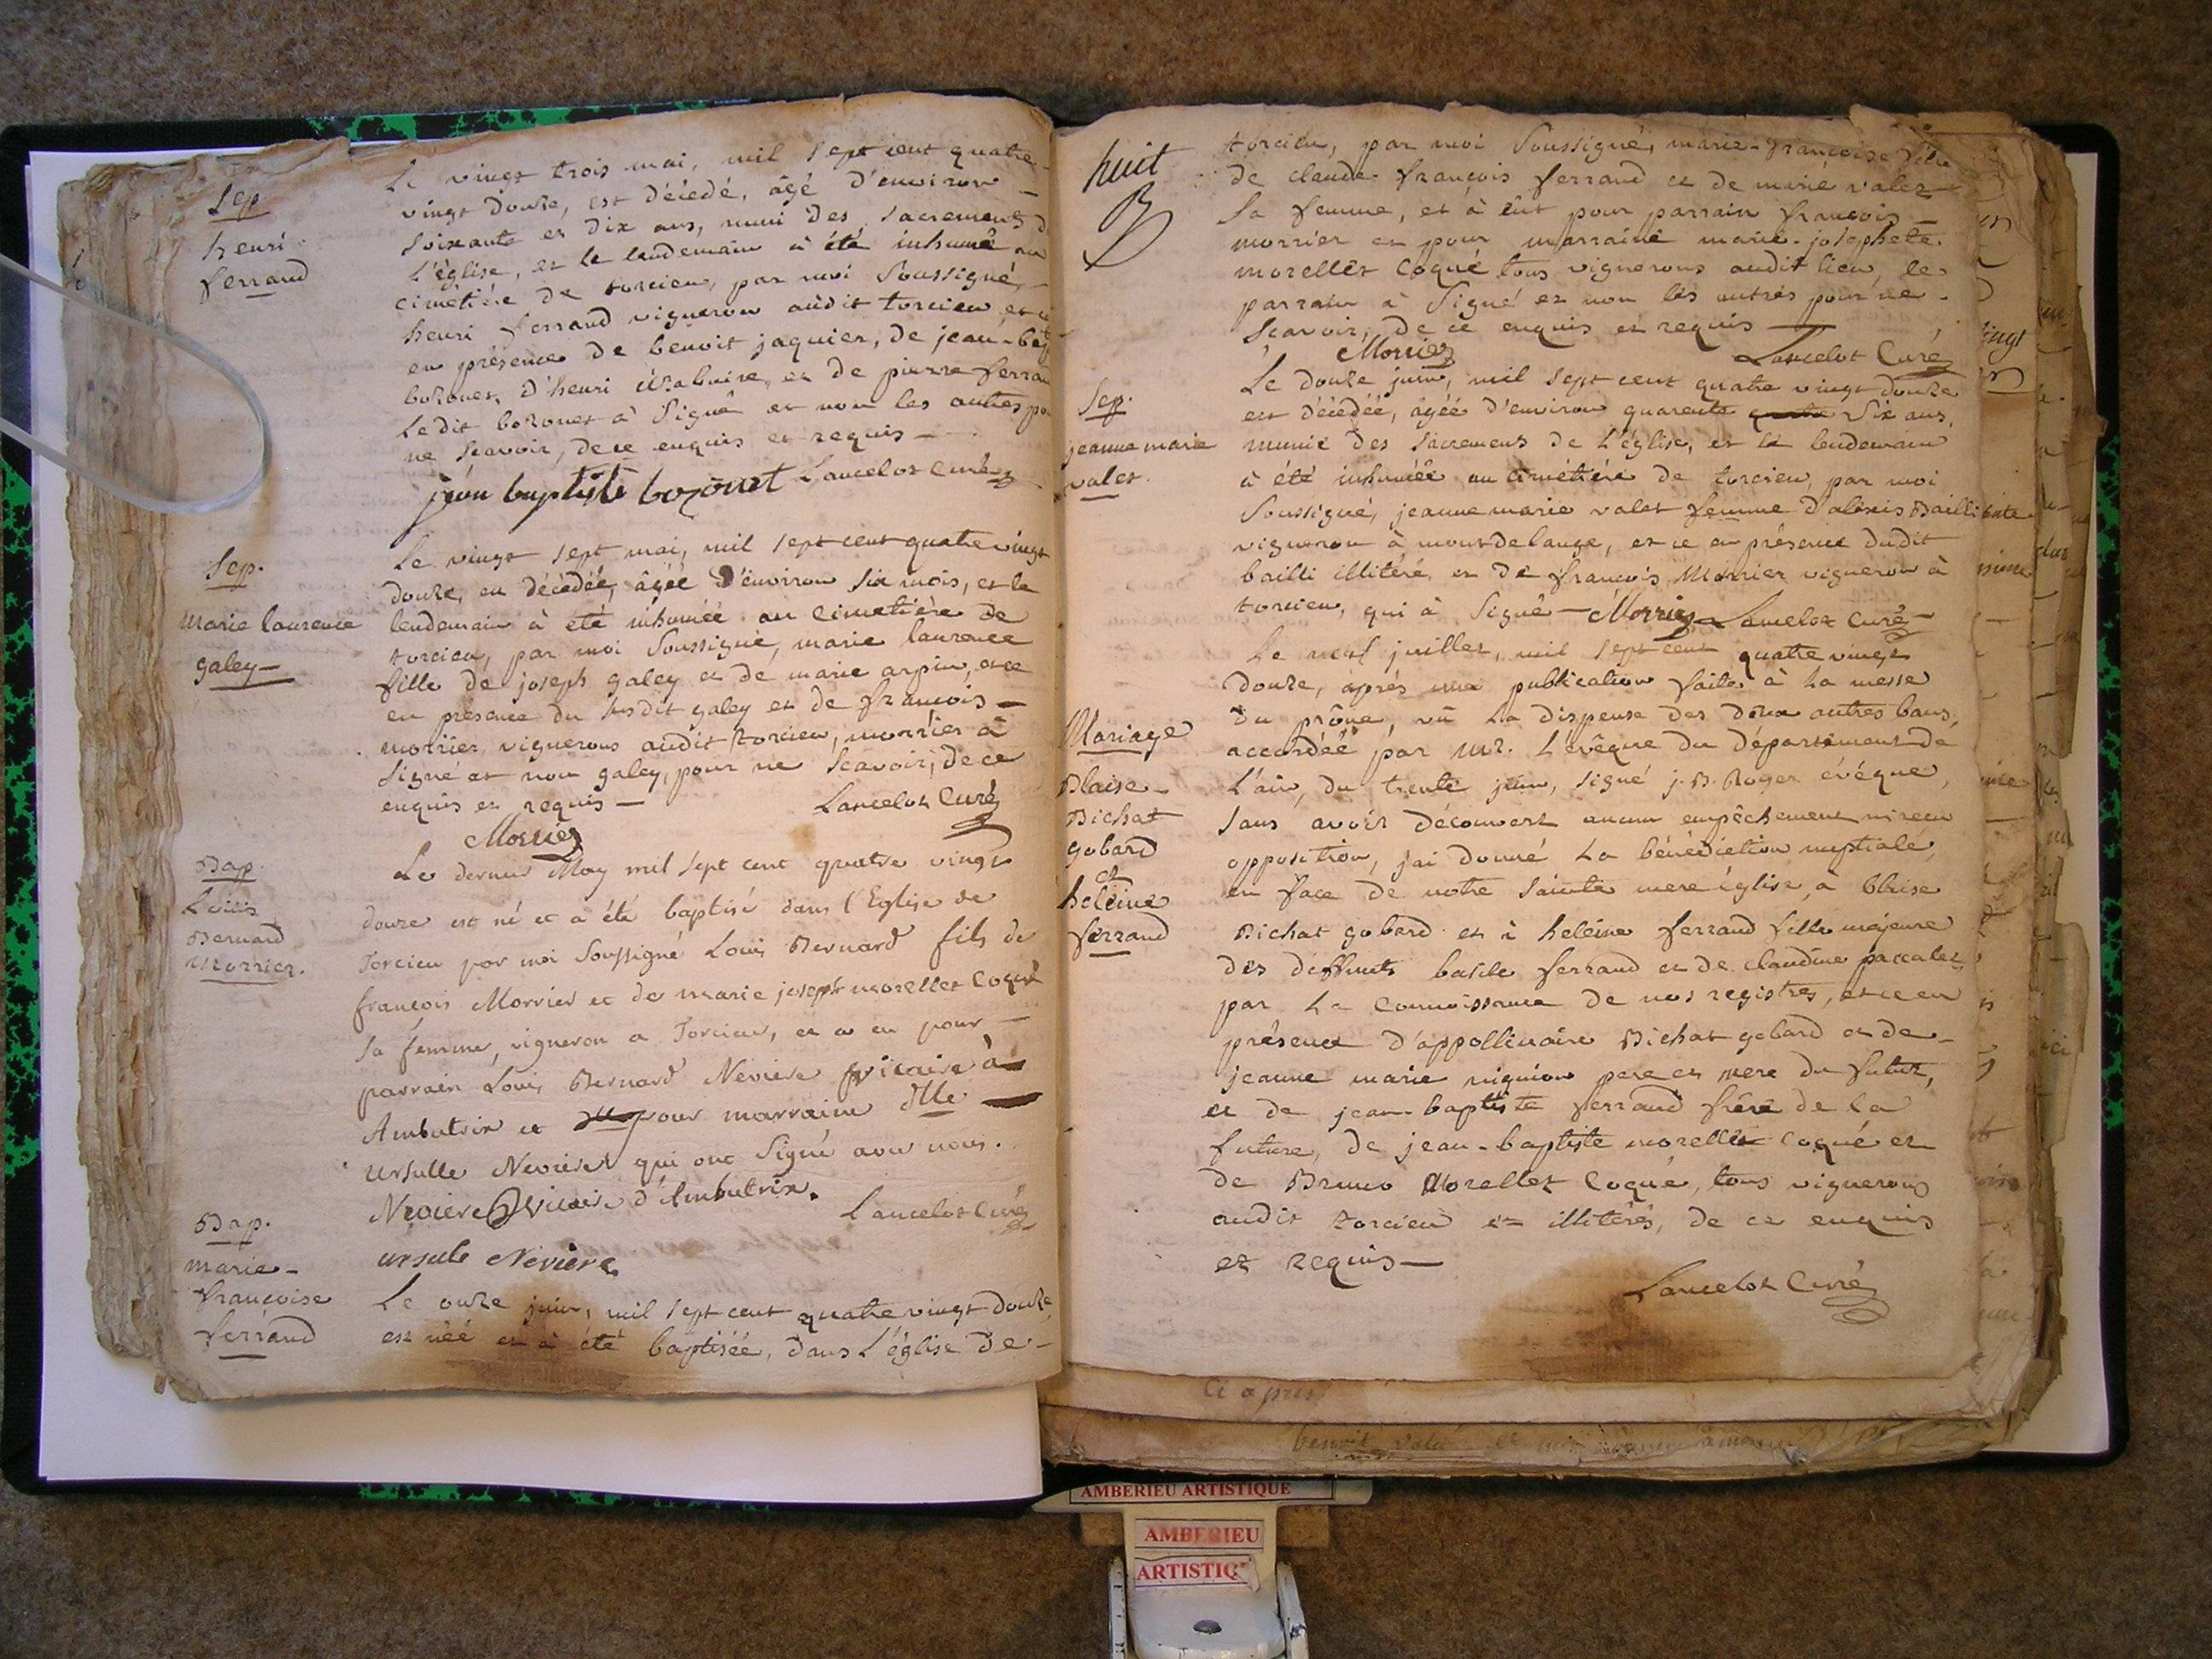 Sep
henri
ferrand
Le vingt trois mai, mil sept cent quatre-
vingt douze, est décédé, âgé d'environ
soixante et dix ans, muni des sacremens d
L'église, et le lendemain à été inhumé au
cimétiére de torcieu, par moi Soussigné,
henri ferrand vigneron audit torcieu et
en présence de benoit jaquier, de jean-bap
bozonet, d'henri et de pierre ferran
Ledit bozonet à Signé et non les autres po
ne scavoir, de ce enquis et requis —
jean baptiste bozonet Lancelot Curé
Sep.
marie laurence
galey—
Le vingt sept mai, mil sept cent quatre vingt
douze, en décédéé, âgéé d'environ six mois, et le
lendemain à été inhuméé au cimetière de
torcieu, par moi Soussigné, marie laurence
fille de joseph galey et de marie arpin, et ce
en présence du susdit galey et de francois —
morrier, vignerons audit torcieu, morrier à
signé et non galey, pour ne scavoir, de ce
enquis et requis — Lancelot Curé
Morrier
Bap.
Louis
Bernard
Morrier.
Le dernier May mil sept cent quatre vingt
douze est né et a été baptisé dans l'Eglise de
Torcieu par moi Soussigné Louis Bernard fils de
françois Morrier et de marie joseph morellet Coqué
sa femme, vigneron a Torcieu, et a eu pour —
parrain Louis Bernard Nevière vicaire à
Ambutrix et pour marraine dlle
Ursulle Nevière qui ont signé avec nous.
Nevière Vicaire d'Ambutrix. Lancelot Curé
ursule Nevière.
Bap.
marie-
françoise
ferrand
Le onze juin, mil sept cent quatre vingt douze,
est néé et à été baptiséé, dans L'église de —
huit
torcieu, par moi Soussigné, marie-françoise fille
de claude françois ferrand et de marie valet
sa femme, et à eut pour parrain francois —
morrier et pour marraine marie-josephete
morellet coqué tous vignerons audit lieu, le
parrain à Signé et non les autres pour ne
scavoir, de ce enquis et requis —
Morrier Lancelot Curé
Sep.
jeanne marie
valet.
Le douze juin, mil sept cent quatre vingt douze
est décédéé, âgéé d'environ quarente six ans,
munie des sacremens de L'église, et le lendemain
à été inhuméé au cimétiére de torcieu, par moi
Soussigné, jeanne marie valet femme d'alexis Bailli
vigneron à montdelange, et ce en présence dudit
bailli illitéré et de françois Morrier vigneron à
torcieu, qui à Signé — Morrier Lancelot Curé —
Mariage
Blaise
Bichat
gobard
et
heléine
ferrand
Le neuf juillet, mil sept cent quatre vingt
douze, aprés une publication faite à la messe
du prône, vû La dispense des deux autres bans,
accordéé par mr. L'évêque du département de
L'ain, du trente juin, signé j. B. Royer évéque,
sans avoir découvert aucun empêchement ni recu
opposition, j'ai donné La bénédiction nuptiale,
en face de notre sainte mere église, à blaise
Bichat gobard et à heléine ferrand fille majeure
des deffunts basile ferrand et de claudine paccalet,
par La connoissance de nos registres, et ce en
présence d'appollinaire Bichat gobard et de
jeanne marie mignion pere et mere du futur,
et de jean-baptiste ferrand frére de la
future, de jean-baptiste morellet coqué et
de Bruno Morellet Coqué, tous vignerons
audit torcieu et illitérés, de ce enquis
et requis —
Lancelot Curé
Ci apres
AMBERIEU ARTISTIQUE
AMBERIEU
ARTISTIQ